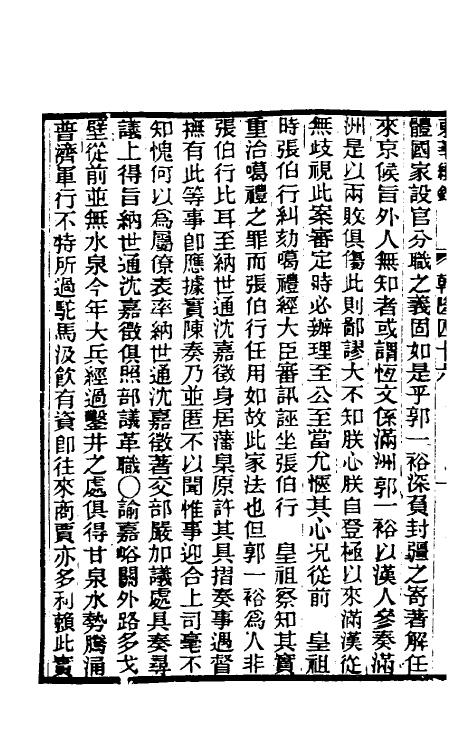 東華續錄 乾隆四十六
體國家設官分職之義固如是乎郭一裕深負封疆之寄著解任
來京候旨外人無知者或謂恆文係滿洲郭一裕以漢人參奏滿
洲是以兩敗俱傷此則鄙謬大不知朕心朕自登極以來滿漢從
無歧視此案審定時必辦理至公至當允愜其心況從前 皇祖
時張伯行糾劾噶禮經大臣審訊誣坐張伯行 皇祖察知其實
重治噶禮之罪而張伯行任用如故此家法也但郭一裕為人非
張伯行比耳至納世通沈嘉徵身居藩臬原許其具摺奏事遇督
撫有此等事卽應據實陳奏乃並匿不以聞惟事迎合上司毫不
知愧何以爲屬僚表率納世通沈嘉徵著交部嚴加議處具奏尋
議上得旨納世通沈嘉徵俱照部議革職〇諭嘉峪關外路多戈
壁從前並無水泉今年大兵經過鑿井之處俱得甘泉水勢騰涌
普濟軍行不特所過駝馬汲飲有資卽往來商賈亦多利賴此實